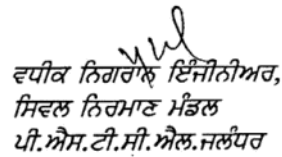 ਵਧੀਕ ਨਿਗਰਾਨ ਇੰਜੀਨੀਅਰ,
ਸਿਵਲ ਨਿਰਮਾਣ ਮੰਡਲ
ਪੀ.ਐਸ.ਟੀ.ਸੀ.ਐਲ.ਜਲੰਧਰ